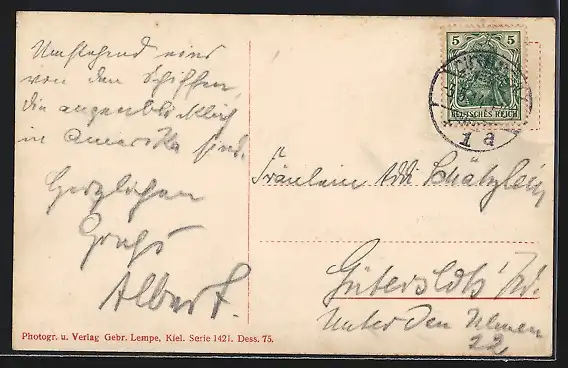 Umstehend eins
von den Schiffen,
die augenblicklich
in Amerika sind.
Herzlichen
Gruß
Albert.
5 5
DEUTSCHES REICH
1 a
Fräulein Addi
Gütersloh i/W.
Unter den Ulmen
22
Photogr. u. Verlag Gebr. Lempe, Kiel. Serie 1421. Dess. 75.